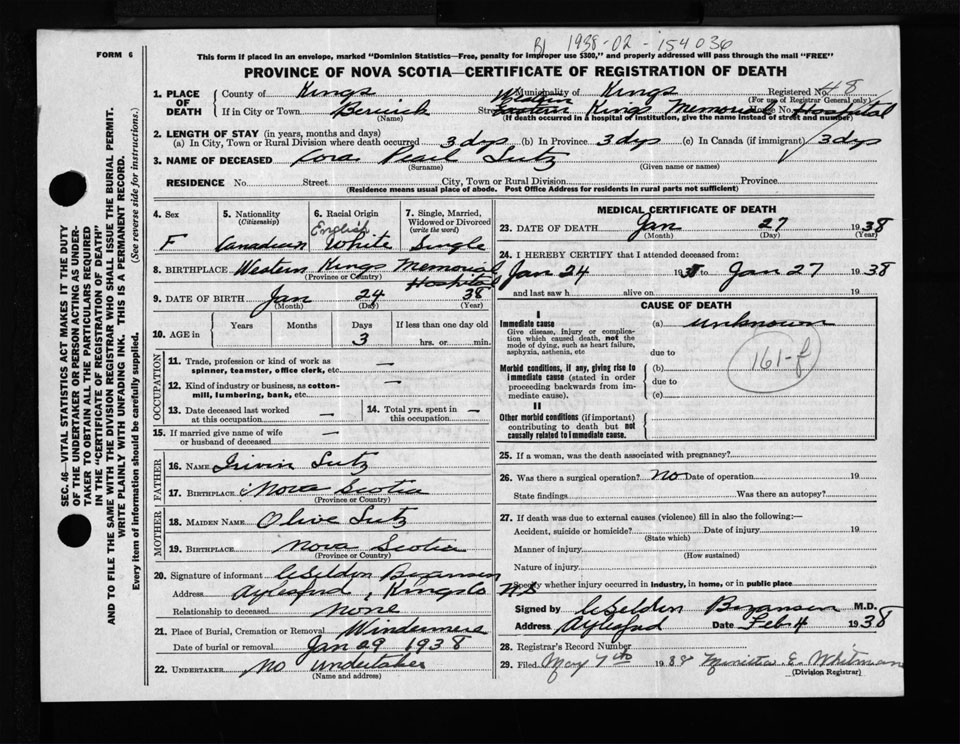 B1 1938-02-154036
FORM 6
This form if placed in an envelope, marked "Dominion Statistics—Free, penalty for improper use $300," and properly addressed will pass through the mail "FREE"
PROVINCE OF NOVA SCOTIA—CERTIFICATE OF REGISTRATION OF DEATH
1. PLACE OF DEATH
County of Kings Municipality of Kings Registered No. 48
(For use of Registrar General only)
If in City or Town Berwick Street Western Kings Memorial Hospital House No.
(Name) (If death occurred in a hospital or institution, give the name instead of street and number)
2. LENGTH OF STAY (in years, months and days)
(a) In City, Town or Rural Division where death occurred 3 dys (b) In Province 3 dys (c) In Canada (if immigrant) 3 dys
3. NAME OF DECEASED Cora Pearl Lutz
(Surname) (Given name or names)
RESIDENCE No. Street City, Town or Rural Division Province
(Residence means usual place of abode. Post Office Address for residents in rural parts not sufficient)
4. Sex F
5. Nationality (Citizenship) Canadian
6. Racial Origin English White
7. Single, Married, Widowed or Divorced (write the word) Single
8. BIRTHPLACE Western Kings Memorial Hospital
(Province or Country)
9. DATE OF BIRTH Jan 24 38
(Month) (Day) (Year)
10. AGE in Years Months Days 3 If less than one day old hrs. or min.
OCCUPATION
11. Trade, profession or kind of work as spinner, teamster, office clerk, etc. —
12. Kind of industry or business, as cotton-mill, lumbering, bank, etc. —
13. Date deceased last worked at this occupation —
14. Total yrs. spent in this occupation —
15. If married give name of wife or husband of deceased —
FATHER
16. NAME Irivin Lutz
17. BIRTHPLACE Nova Scotia
(Province or Country)
MOTHER
18. MAIDEN NAME Olive Lutz
19. BIRTHPLACE Nova Scotia
(Province or Country)
20. Signature of informant
Address Aylesford, Kings Co N S
Relationship to deceased none
21. Place of Burial, Cremation or Removal Windermere
Date of burial or removal Jan 29 1938
22. UNDERTAKER No undertaker
(Name and address)
MEDICAL CERTIFICATE OF DEATH
23. DATE OF DEATH Jan 27 1938
(Month) (Day) (Year)
24. I HEREBY CERTIFY that I attended deceased from:
Jan 24 1938 to Jan 27 1938
and last saw h alive on 19
CAUSE OF DEATH
I
Immediate cause
Give disease, injury or complication which caused death, not the mode of dying, such as heart failure, asphyxia, asthenia, etc
(a) unknown
due to
161-f
Morbid conditions, if any, giving rise to immediate cause (stated in order proceeding backwards from immediate cause).
(b)
due to
(c)
II
Other morbid conditions (if important) contributing to death but not causally related to immediate cause.
25. If a woman, was the death associated with pregnancy?
26. Was there a surgical operation? No Date of operation 19
State findings Was there an autopsy?
27. If death was due to external causes (violence) fill in also the following:—
Accident, suicide or homicide? Date of injury 19
(State which)
Manner of injury
(How sustained)
Nature of injury
Specify whether injury occurred in industry, in home, or in public place
Signed by M.D.
Address Aylesford Date Feb 4 1938
28. Registrar's Record Number
29. Filed May 7th 1938 E. Whitman
(Division Registrar)
SEC. 46—VITAL STATISTICS ACT MAKES IT THE DUTY
OF THE UNDERTAKER OR PERSON ACTING AS UNDER-
TAKER TO OBTAIN ALL THE PARTICULARS REQUIRED
IN THE "CERTIFICATE OF REGISTRATION OF DEATH"
AND TO FILE THE SAME WITH THE DIVISION REGISTRAR WHO SHALL ISSUE THE BURIAL PERMIT.
WRITE PLAINLY WITH UNFADING INK. THIS IS A PERMANENT RECORD.
Every item of information should be carefully supplied. (See reverse side for instructions.)